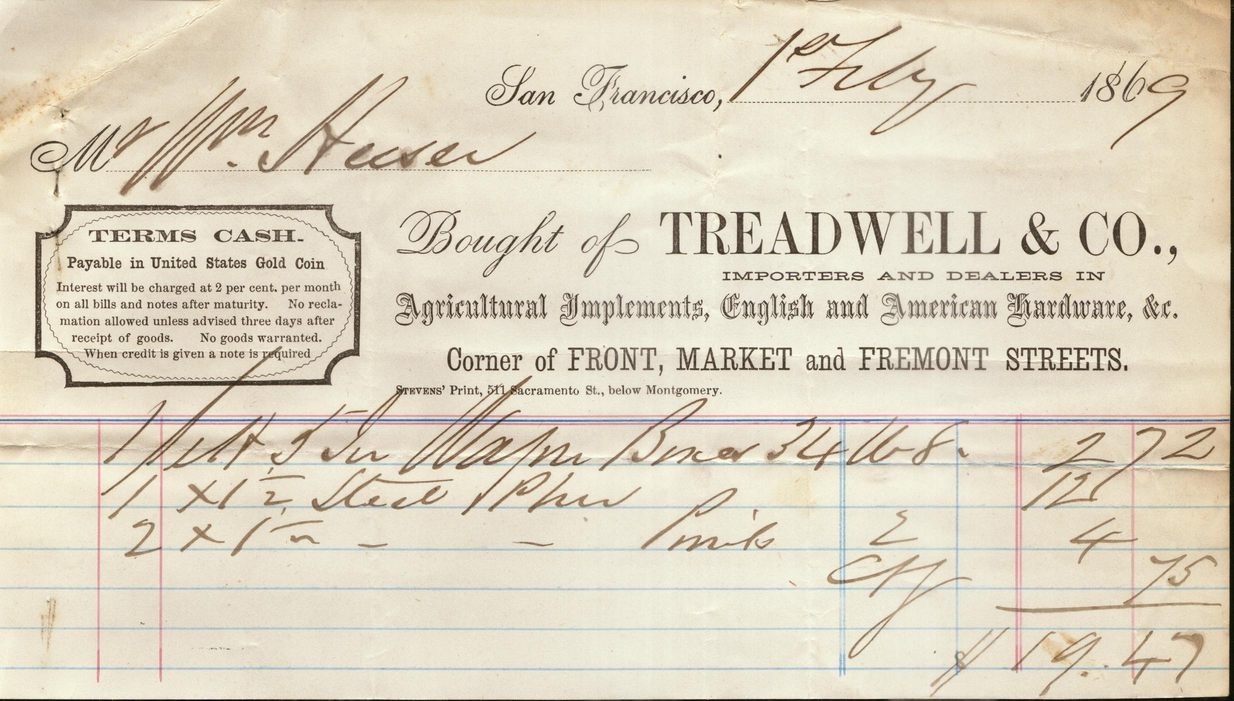 San Francisco, 1st Feby 1869
Mr Wm. Heeser
TERMS CASH.
Payable in United States Gold Coin
Interest will be charged at 2 per cent. per month
on all bills and notes after maturity. No recla-
mation allowed unless advised three days after
receipt of goods. No goods warranted.
When credit is given a note is required
Bought of TREADWELL & CO.,
IMPORTERS AND DEALERS IN
Agricultural Implements, English and American Hardware, &c.
Corner of FRONT, MARKET and FREMONT STREETS.
STEVENS' Print, 511 Sacramento St., below Montgomery.
1 Sett 5 in Wagn Boxes 34 lb 8. 2 72
1 X 1 1/2 Steel Plow 12
2 X 1 - - Points 2 4
75
$ 19.47